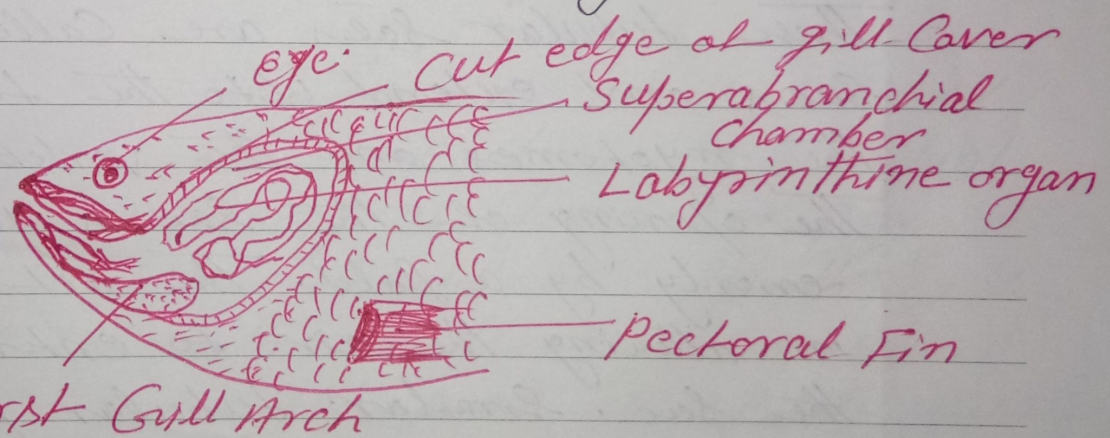 eye.
Cut edge of gill Cover
Superabranchial
chamber
Labyrinthine organ
Pectoral Fin
rst Gill Arch